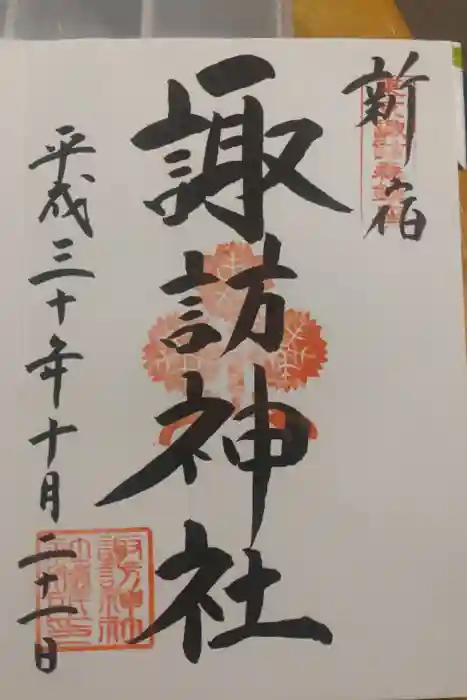 新宿
諏訪神社
平成三十年十月二十一日
諏訪神社